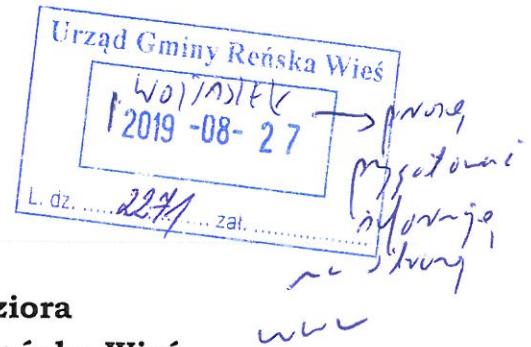 Urząd Gminy Reńska Wieś
2019 -08- 27
L. dz. ..... 2271 ..... zał. ....................
→ proszę
przygotować
informację
na stronę
www
ziora